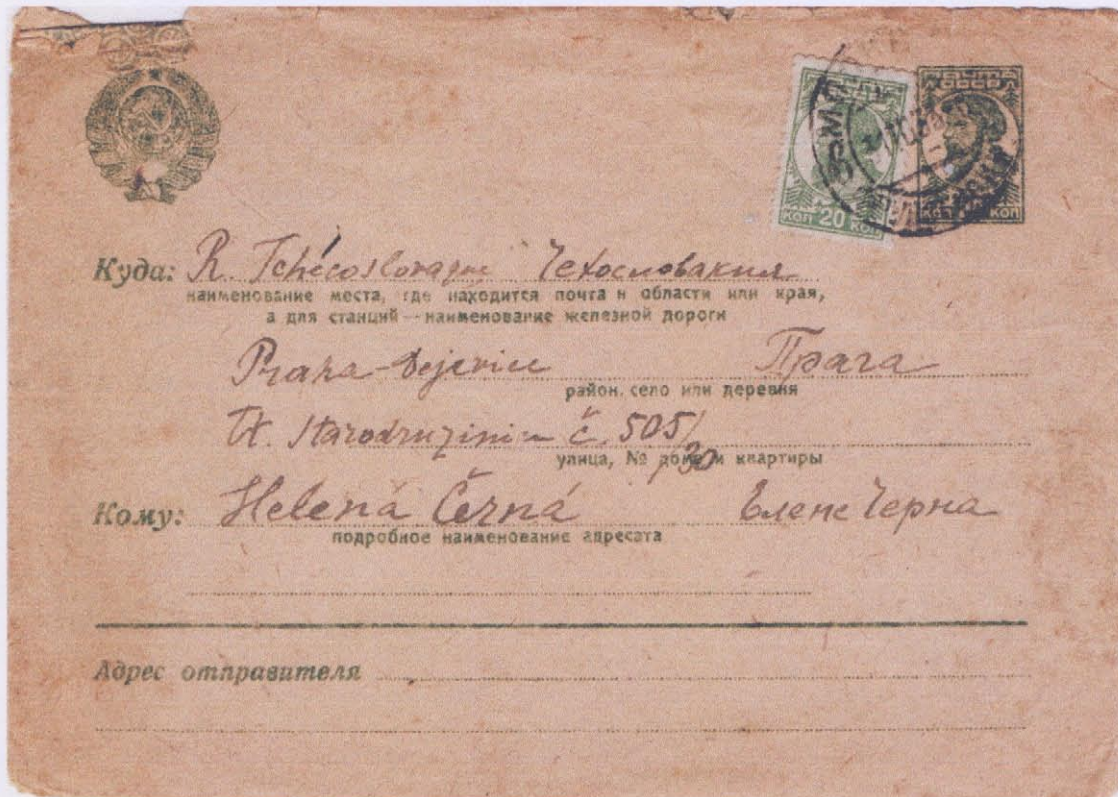 ПОЧТА
СССР
КОП 20 КОП
КОП КОП
Куда: R. Tchécoslovaquie Чехословакия
наименование места, где находится почта и области или края,
а для станций—наименование железной дороги
Praha-Dejvice Прага
район, село или деревня
č. 505/
30
улица, № дома и квартиры
Кому: Helena Černá Елене Черна
подробное наименование адресата
Адрес отправителя